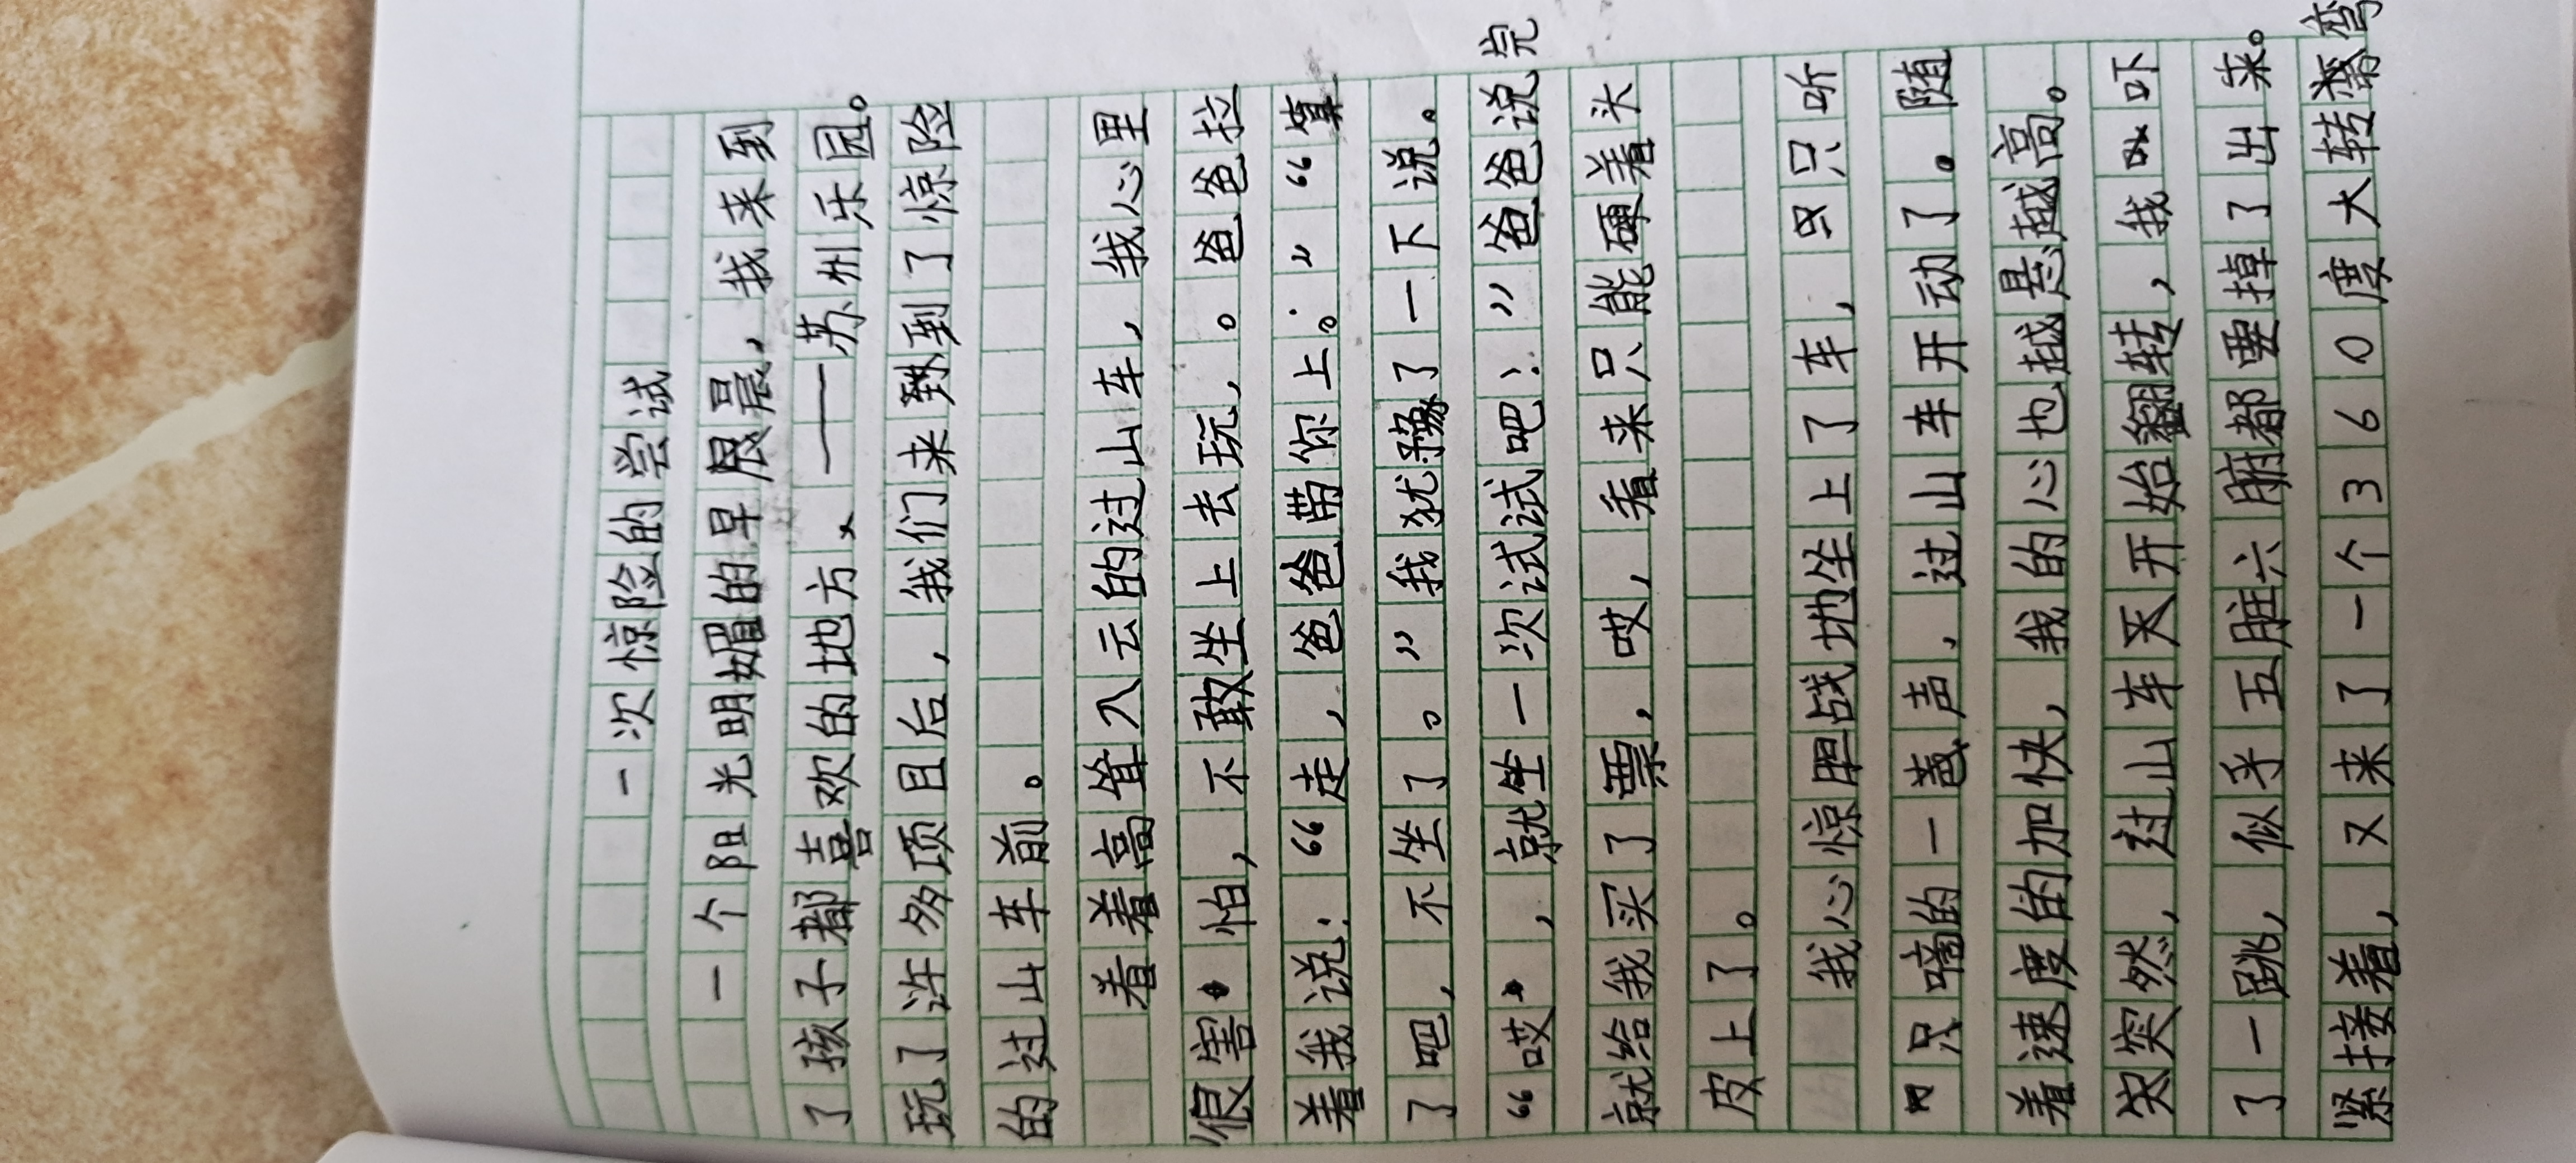 一次惊险的尝试
一个阳光明媚的早晨，我来到
了孩子都喜欢的地方、——苏州乐园。
玩了许多项目后，我们来到了惊险
的过山车前。
看着高耸入云的过山车，我心里
很害怕，不敢坐上去玩，。爸爸拉
着我说：“走，爸爸带你上。”“算
了吧，不坐了。”我犹豫了一下说。
“哎，就坐一次试试吧！”爸爸说完
就给我买了票，哎，看来只能硬着头
皮上了。
我心惊胆战地坐上了车，只只听
只嘀的一声，过山车开动了。随
着速度的加快，我的心也越悬越高。
突然，过山车开始翻转，我吓
了一跳，似乎五脏六腑都要掉了出来。
紧接着，又来了一个360度大转弯